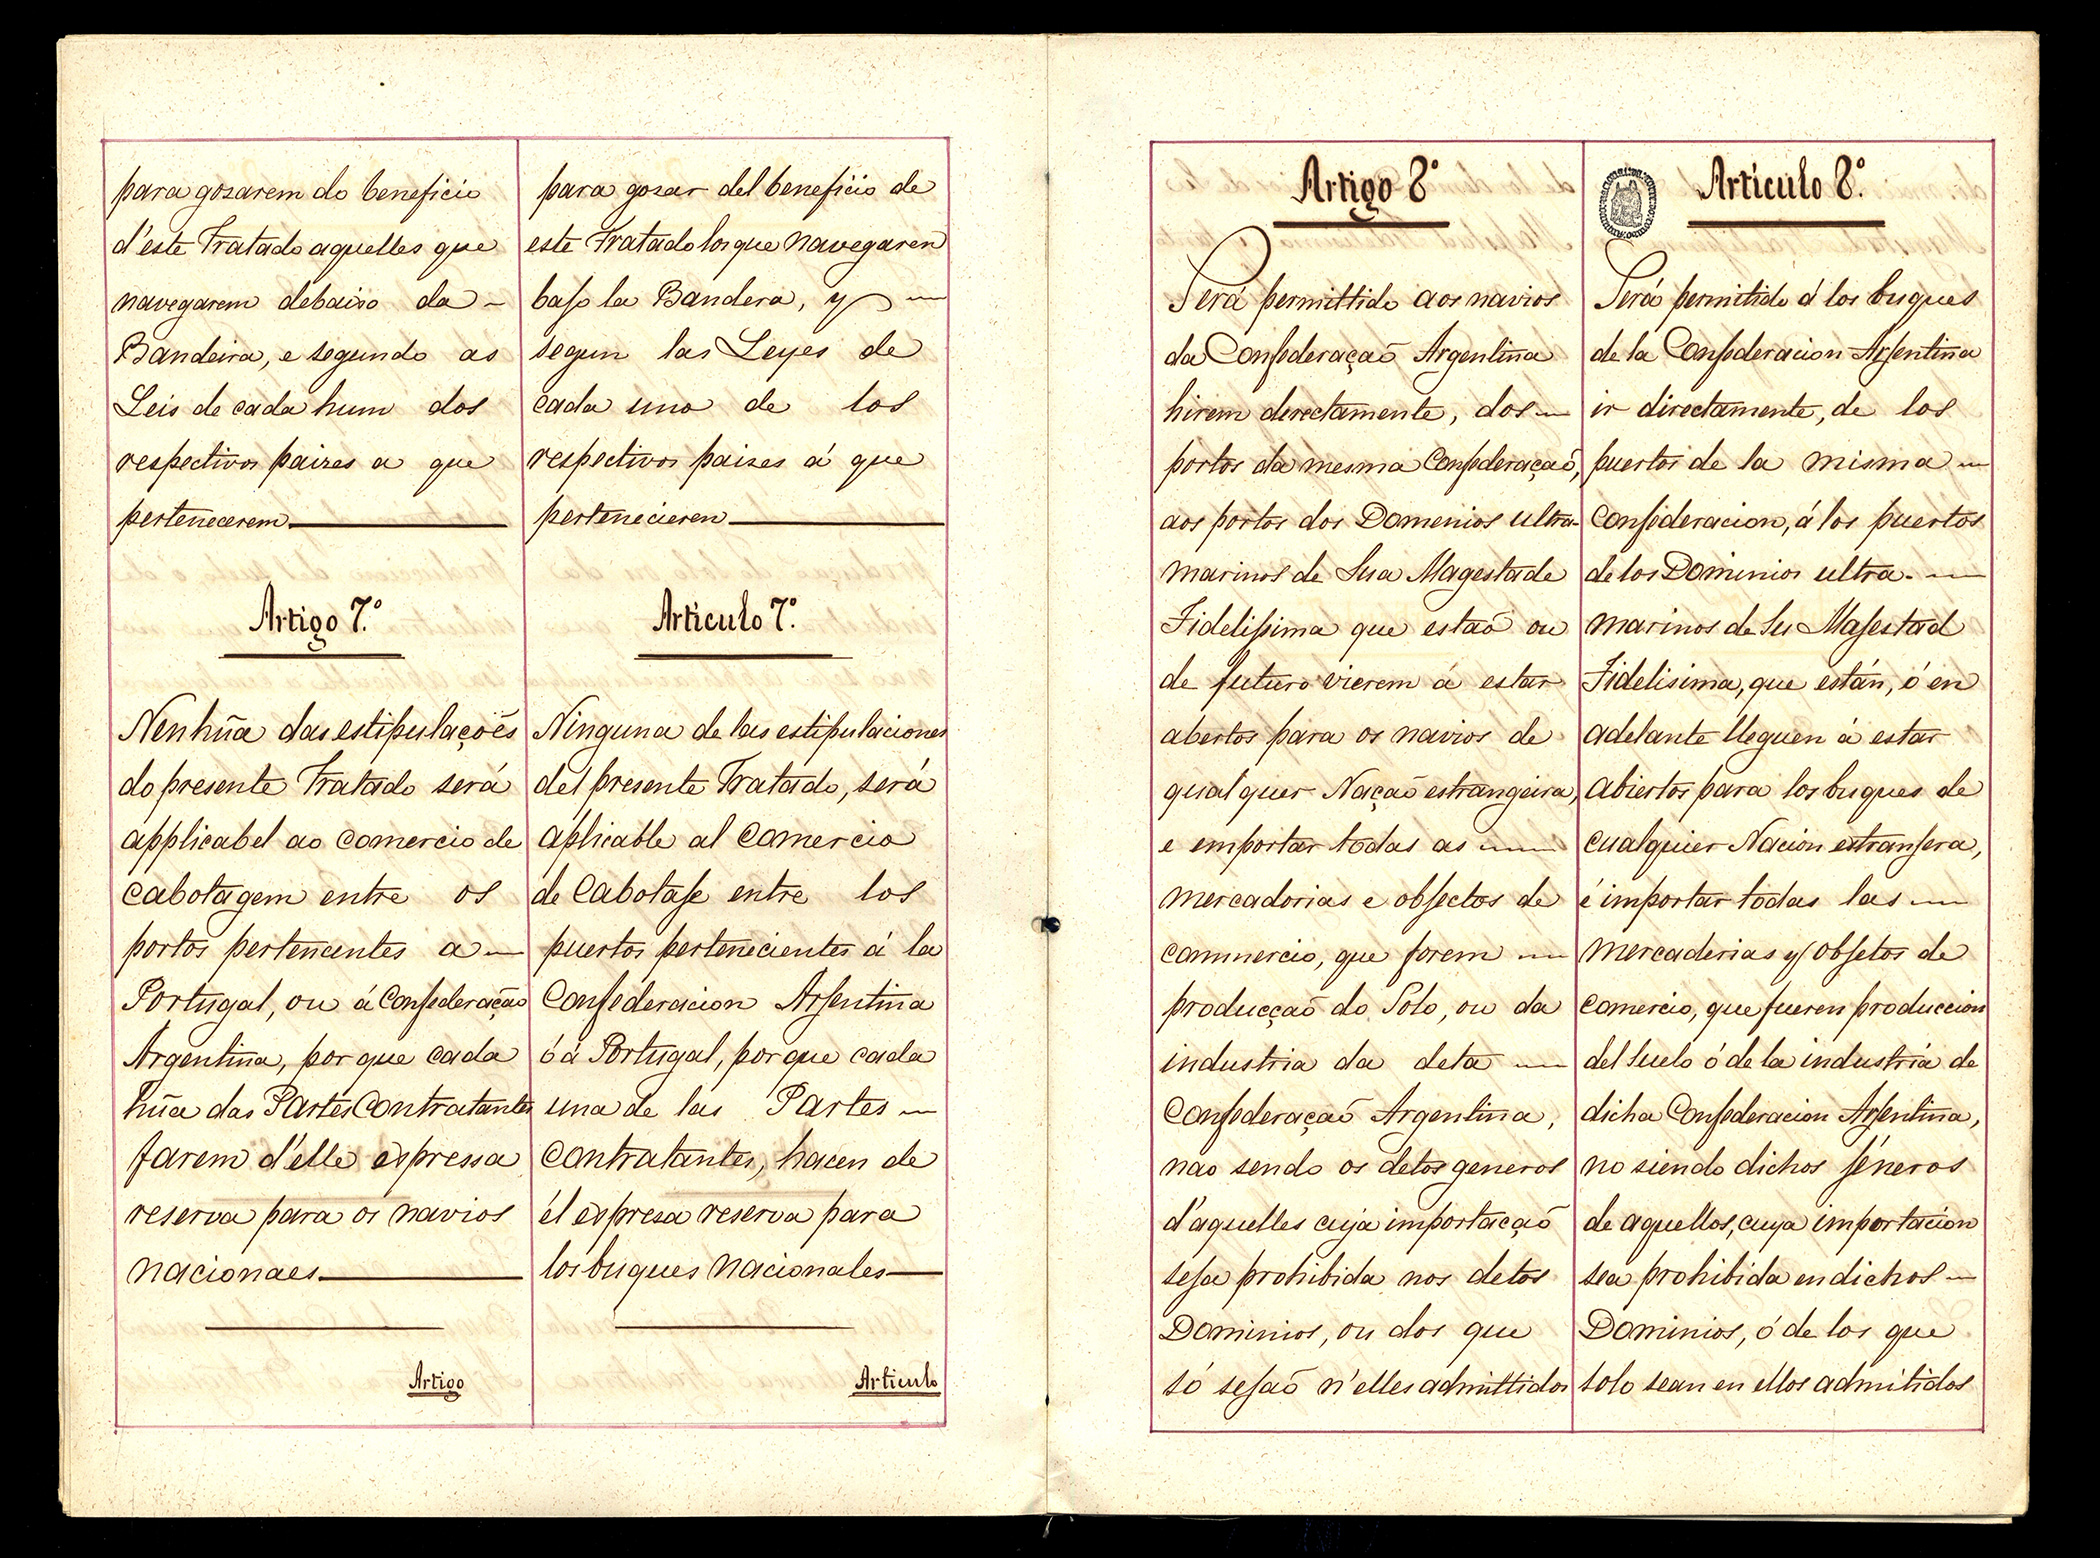 para gosarem do beneficio
d'este Tratado aquelles que
navegarem debaixo da
Bandeira, e segundo as
Leis de cada hum dos
respectivos paizes a que
pertencerem
Artigo 7.º
Nenhũa das estipulações
do presente Tratado será
applicabel ao comercio de
cabotagem entre os
portos pertencentes a
Portugal, ou á Confederação
Argentina, por que cada
hũa das Partes Contratantes
farem d'elle expressa
reserva para os navios
nacionaes
Artigo
para gosar del beneficio de
este Tratado los que navegaren
bajo la Bandera, y
segun las Leyes de
cada uno de los
respectivos paises á que
pertenecieren
Articulo 7.º
Ninguna de las estipulaciones
del presente Tratado, será
aplicable al Comercio
de Cabotaje entre los
puertos pertenecientes á la
Confederacion Arjentina
ó á Portugal, por que cada
una de las Partes
contratantes, hacen de
él expresa reserva para
los buques nacionales
Articulo
Artigo 8º
Será permittido aos navios
da Confederaçaõ Argentina
hirem derectamente, dos
portos da mesma Confederaçaõ,
aos portos dos Domenios ultra-
marinos de Sua Magestade
Fidelissima que estaõ ou
de futuro vierem á estar
abertos para os navios de
qualquer Naçaõ estrangeira,
e emportar todas as
mercadorias e objectos de
commercio, que forem
producçaõ do Solo, ou da
industria da deta
Confederaçaõ Argentina,
nao sendo os detos generos
d'aquelles cuja importaçaõ
seja prohibida nos detos
Dominios, ou dos que
só sejaõ n'elles admittidos
Articulo 8.º
Será permitido á los buques
de la Confederacion Arjentina
ir directamente, de los
puertos de la misma
Confederacion, á los puertos
de los Dominios ultra-
marinos de Su Majestad
Fidelisima, que están, ó en
adelante lleguen á estar
abiertos para los buques de
cualquier Nacion estranjera,
é importar todas las
mercaderias y objetos de
comercio, que fueren produccion
del suelo ó de la industria de
dicha Confederacion Arjentina,
no siendo dichos jéneros
de aquellos, cuya importacion
sea prohibida en dichos
Dominios, ó de los que
solo sean en ellos admitidos